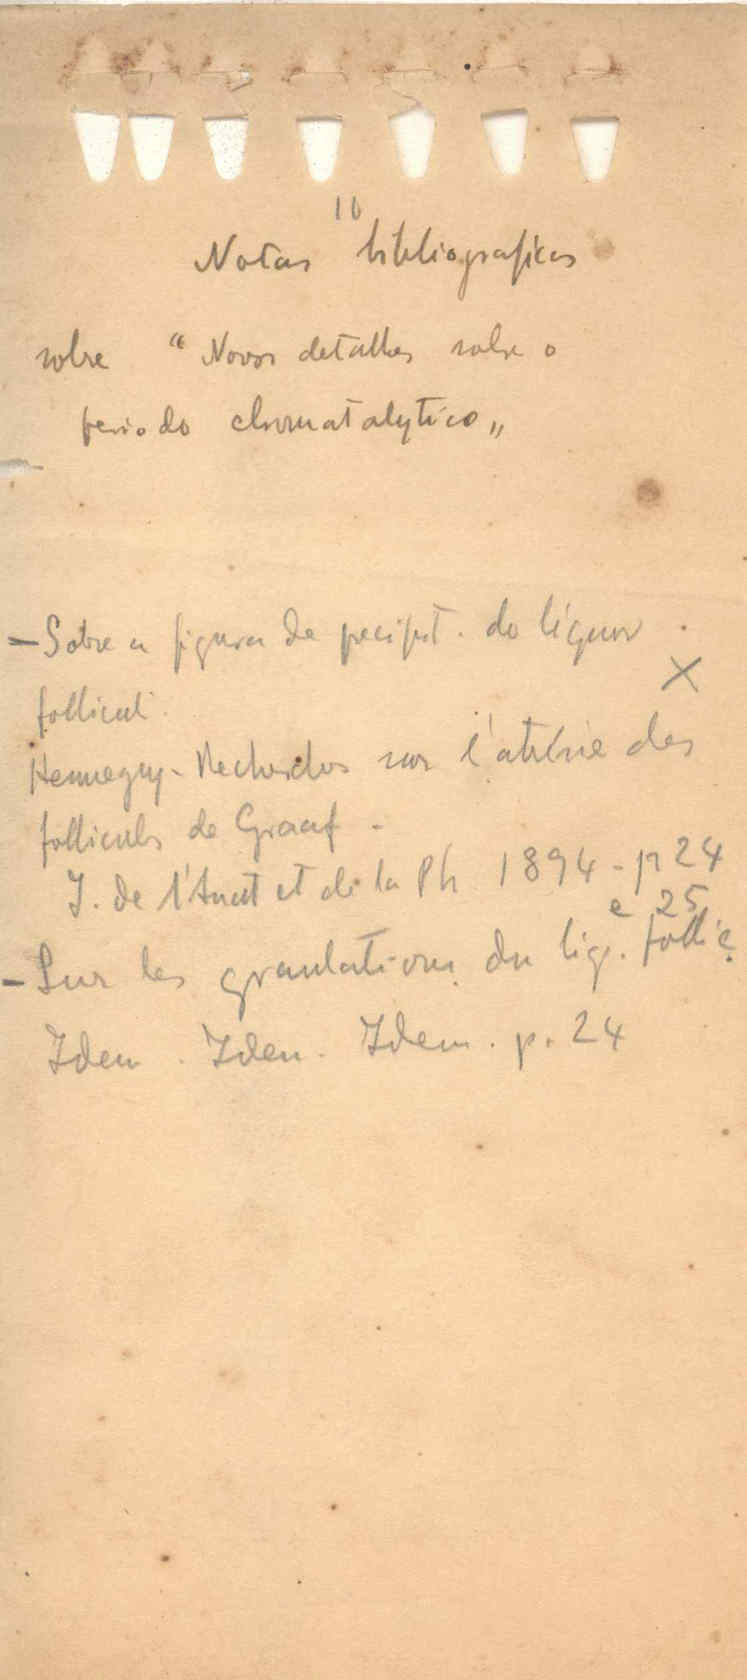 10
Notas bibliograficas
sobre " Novos detalhes sobre o
periodo chromatalytico „
- Sobre a figura de precipit. do líquor
folliculi. X
Henneguy - Recherches sur l'atrésie des
follicules de Graaf -
J. de l'Anat et de la Ph 1894 - p 24
e 25
- Sur les granulations du liq. follic.
Idem . Idem . Idem . p. 24